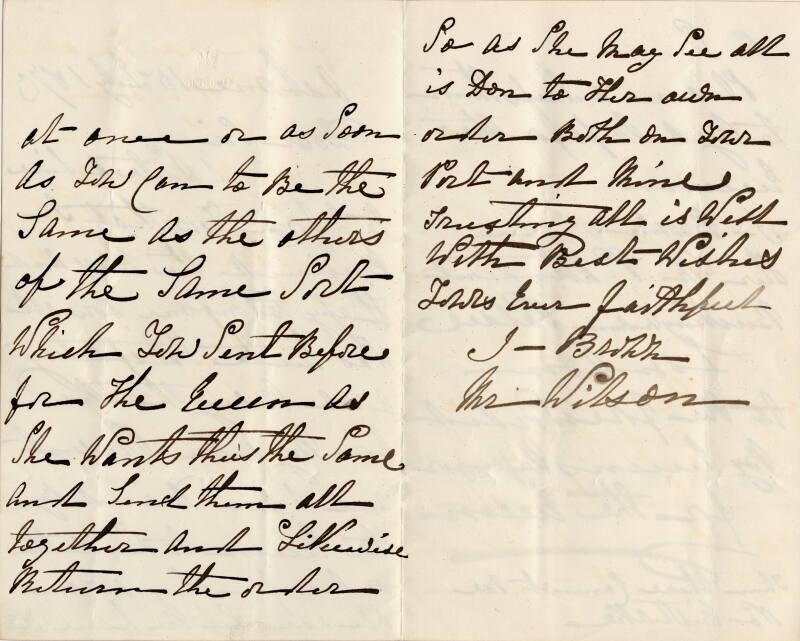 at once or as Soon
as You Can to Be the
Same as the others
of the Same Sort
Which You Sent Before
for the Queen as
She Wants this the Same
and Send them all
together and Likewise
Return the order
So as She May See all
is Don to Her own
order Both on Your
Port and Mine
Trusting all is Well
With Best Wishes
Yours Ever faithfull
J - Brown
Mr Wilson